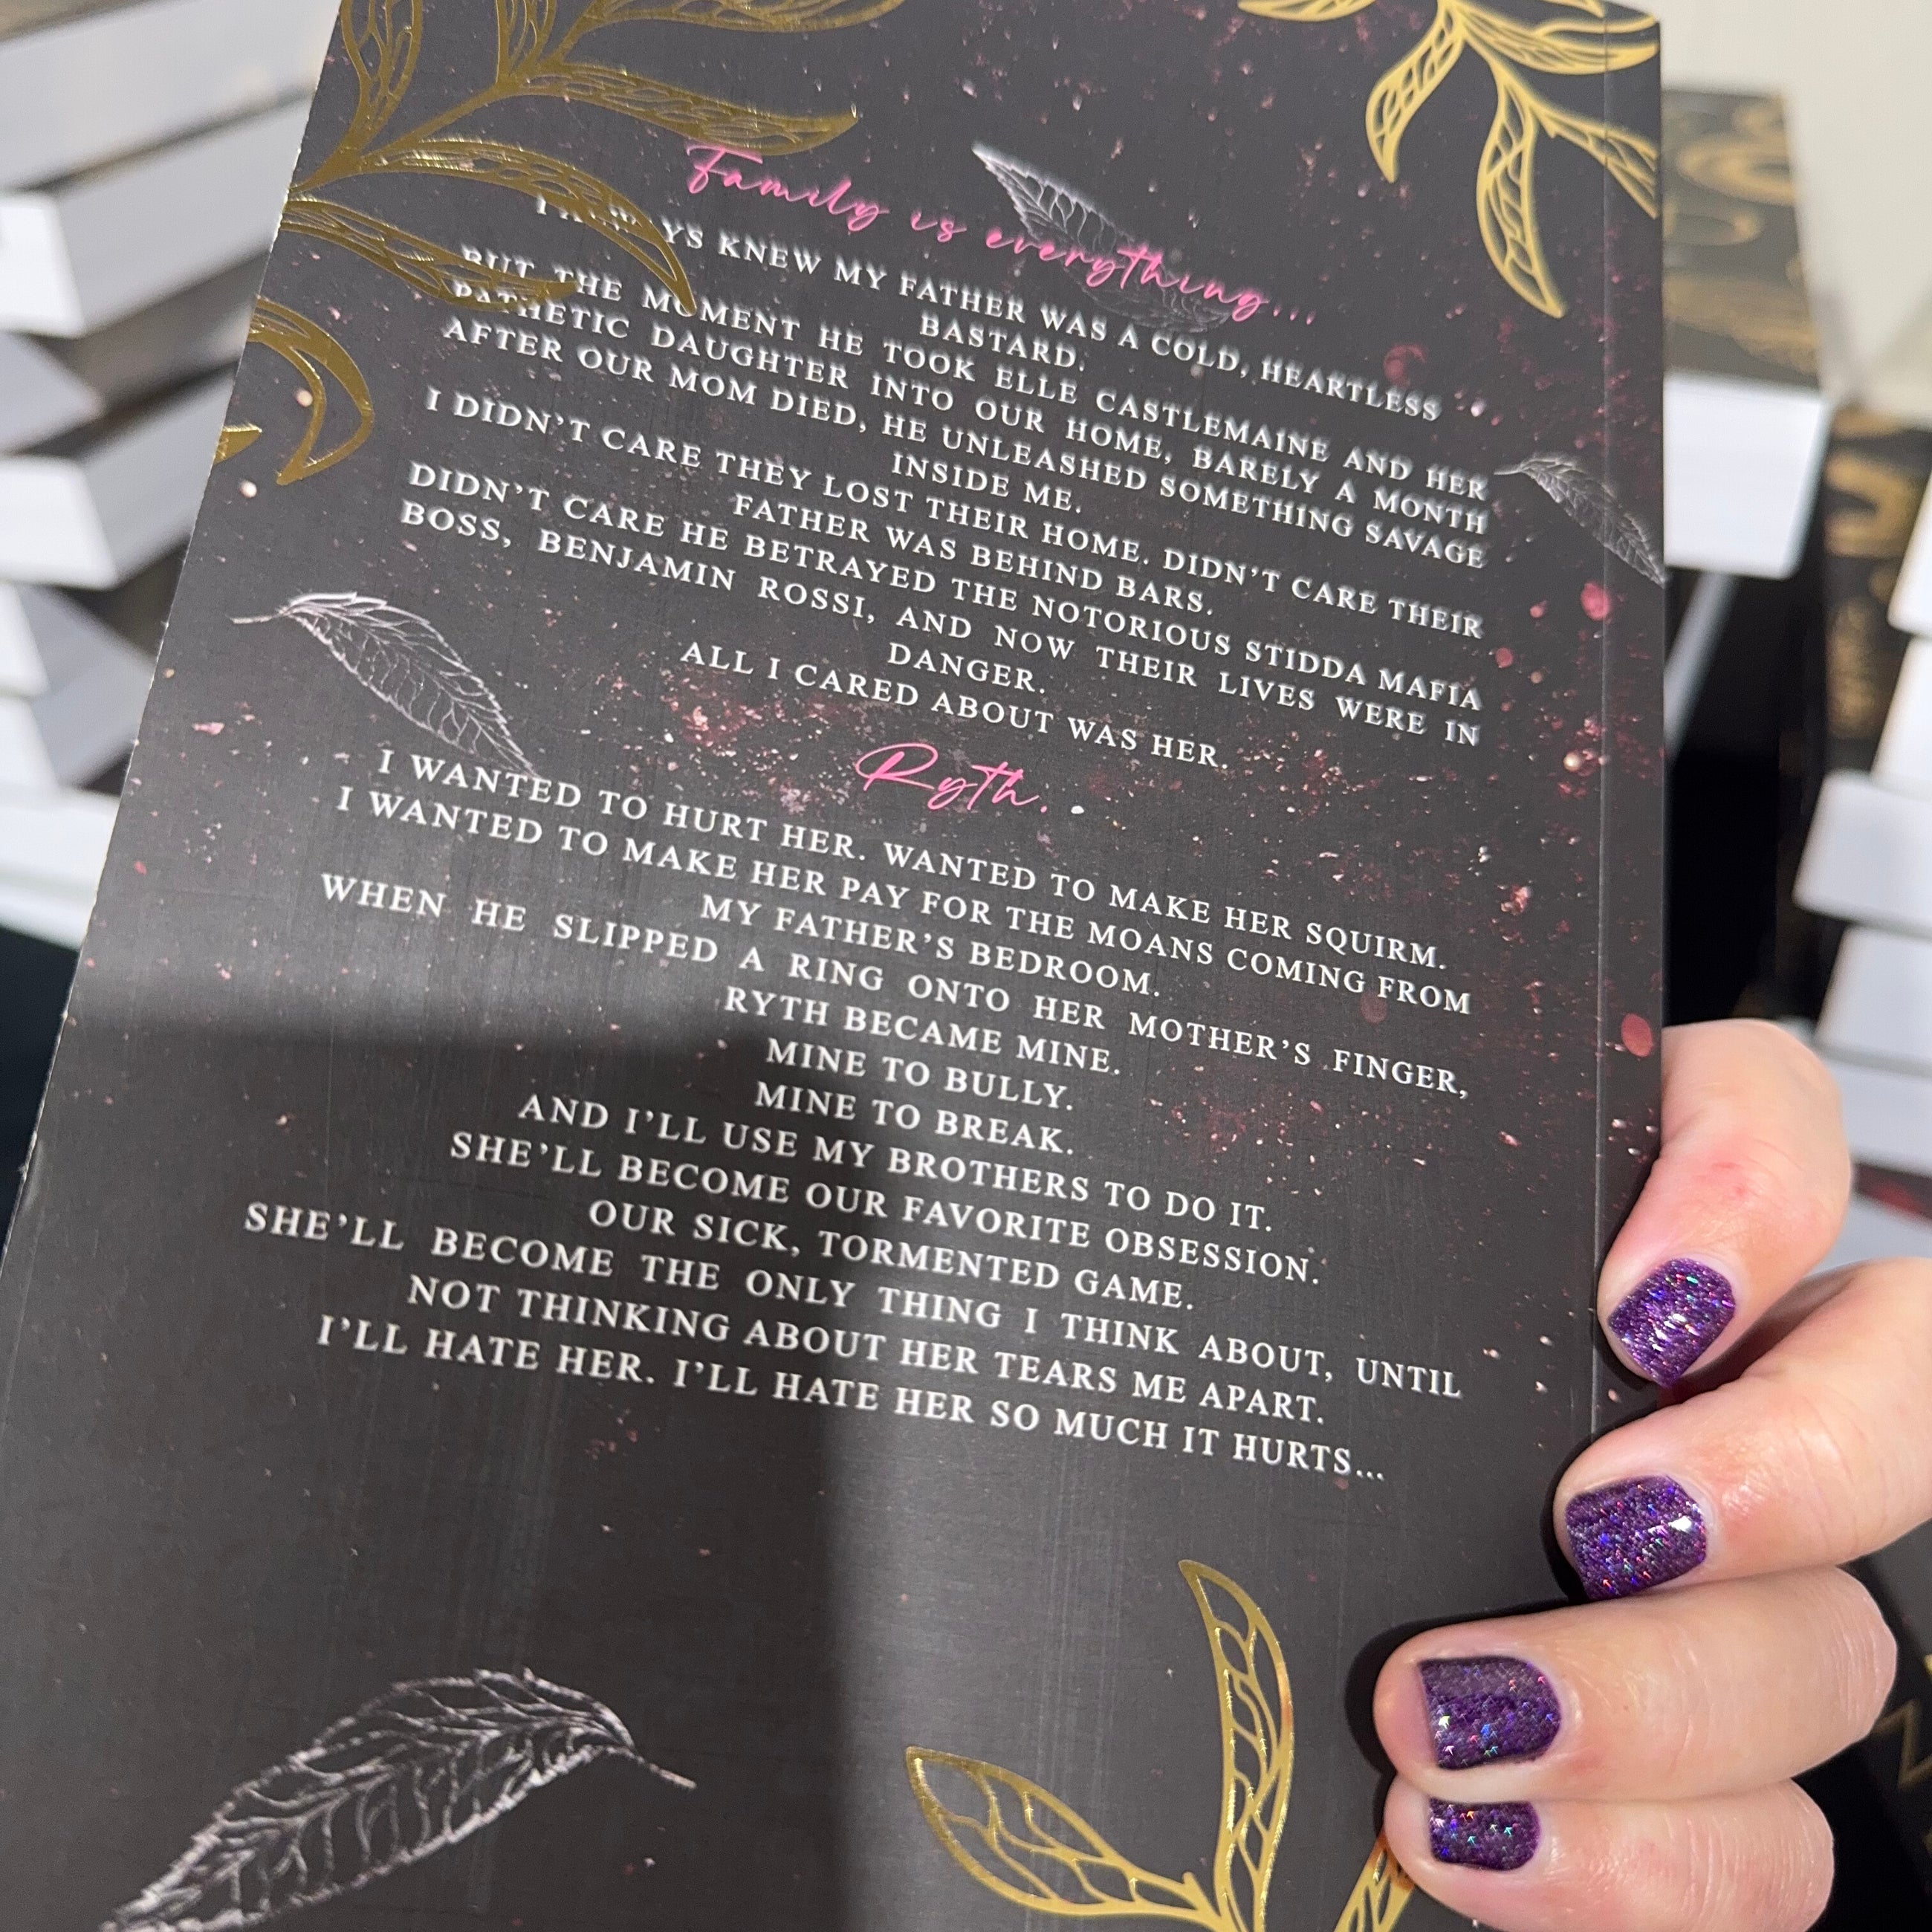 Family is everything...
I ALWAYS KNEW MY FATHER WAS A COLD, HEARTLESS
BASTARD.
BUT THE MOMENT HE TOOK ELLE CASTLEMAINE AND HER
PATHETIC DAUGHTER INTO OUR HOME, BARELY A MONTH
AFTER OUR MOM DIED, HE UNLEASHED SOMETHING SAVAGE
INSIDE ME.
I DIDN'T CARE THEY LOST THEIR HOME. DIDN'T CARE THEIR
FATHER WAS BEHIND BARS.
DIDN'T CARE HE BETRAYED THE NOTORIOUS STIDDA MAFIA
BOSS, BENJAMIN ROSSI, AND NOW THEIR LIVES WERE IN
DANGER.
ALL I CARED ABOUT WAS HER.
Ryth.
I WANTED TO HURT HER. WANTED TO MAKE HER SQUIRM.
I WANTED TO MAKE HER PAY FOR THE MOANS COMING FROM
MY FATHER'S BEDROOM.
WHEN HE SLIPPED A RING ONTO HER MOTHER'S FINGER,
RYTH BECAME MINE.
MINE TO BULLY.
MINE TO BREAK.
AND I'LL USE MY BROTHERS TO DO IT.
SHE'LL BECOME OUR FAVORITE OBSESSION.
OUR SICK, TORMENTED GAME.
SHE'LL BECOME THE ONLY THING I THINK ABOUT, UNTIL
NOT THINKING ABOUT HER TEARS ME APART.
I'LL HATE HER. I'LL HATE HER SO MUCH IT HURTS...